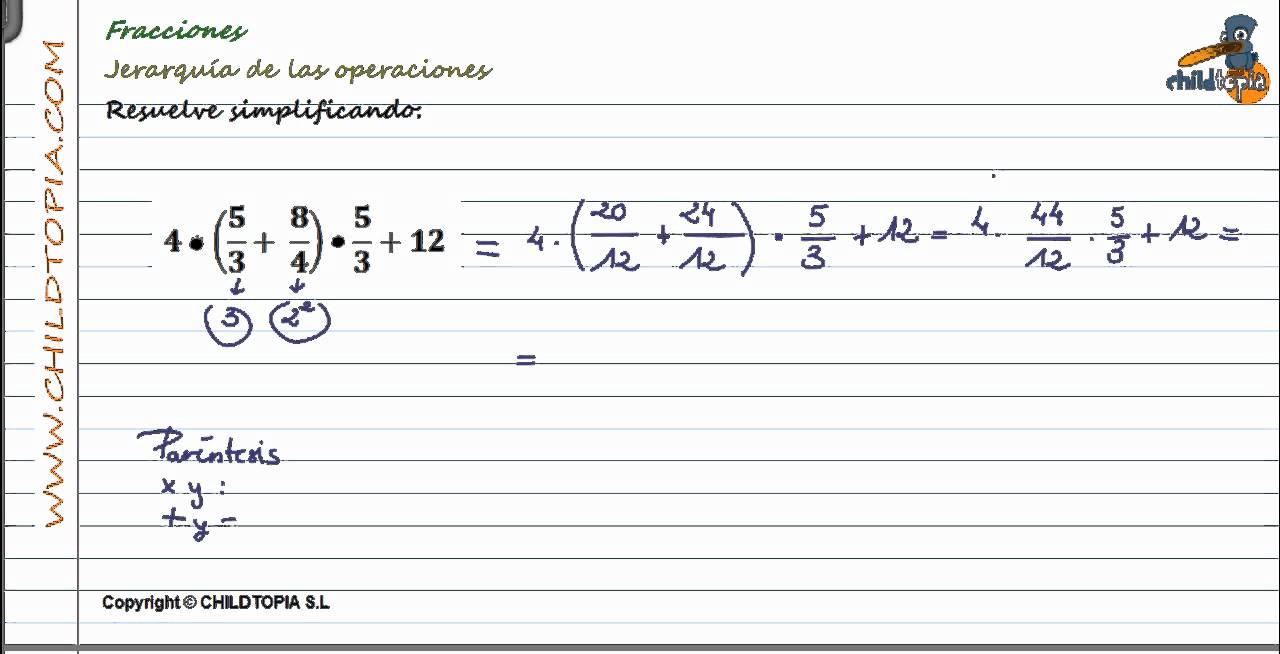 Fracciones
Jerarquía de las operaciones
Resuelve simplificando:
childtopia
WWW.CHILDTOPIA.COM
4•(5/3 + 8/4)•5/3 + 12 = 4·(20/12 + 24/12)·5/3 + 12 = 4·44/12·5/3 + 12 =
↓ ↓
3 2²
=
Paréntesis
x y :
+ y -
Copyright © CHILDTOPIA S.L